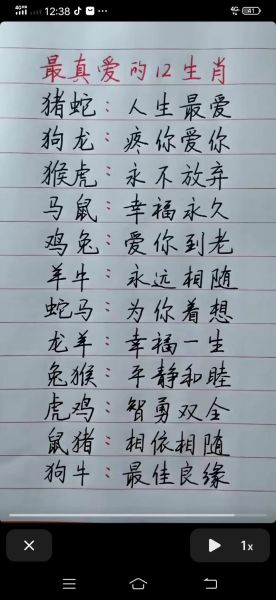 12:38
41
最真爱的12生肖
猪蛇：人生最爱
狗龙：疼你爱你
猴虎：永不放弃
马鼠：幸福永久
鸡兔：爱你到老
羊牛：永远相随
蛇马：为你着想
龙羊：幸福一生
兔猴：平静和睦
虎鸡：智勇双全
鼠猪：相依相随
狗牛：最佳良缘
1x